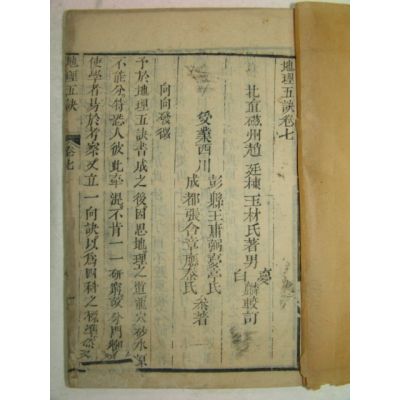 地理五訣卷七
北直磁州趙廷棟玉材氏著男
白
麟較訂
受業西川
彭縣王庸弼
亭氏
成都張含章
氏
叅著
向向發微
予於地理五訣書成之後因思地理之道龍穴砂水原
不能分符恐人彼此牽混不肯一一研窮故分門
使學者易於考察又立一向訣以為四科之標準
地理五訣
卷七